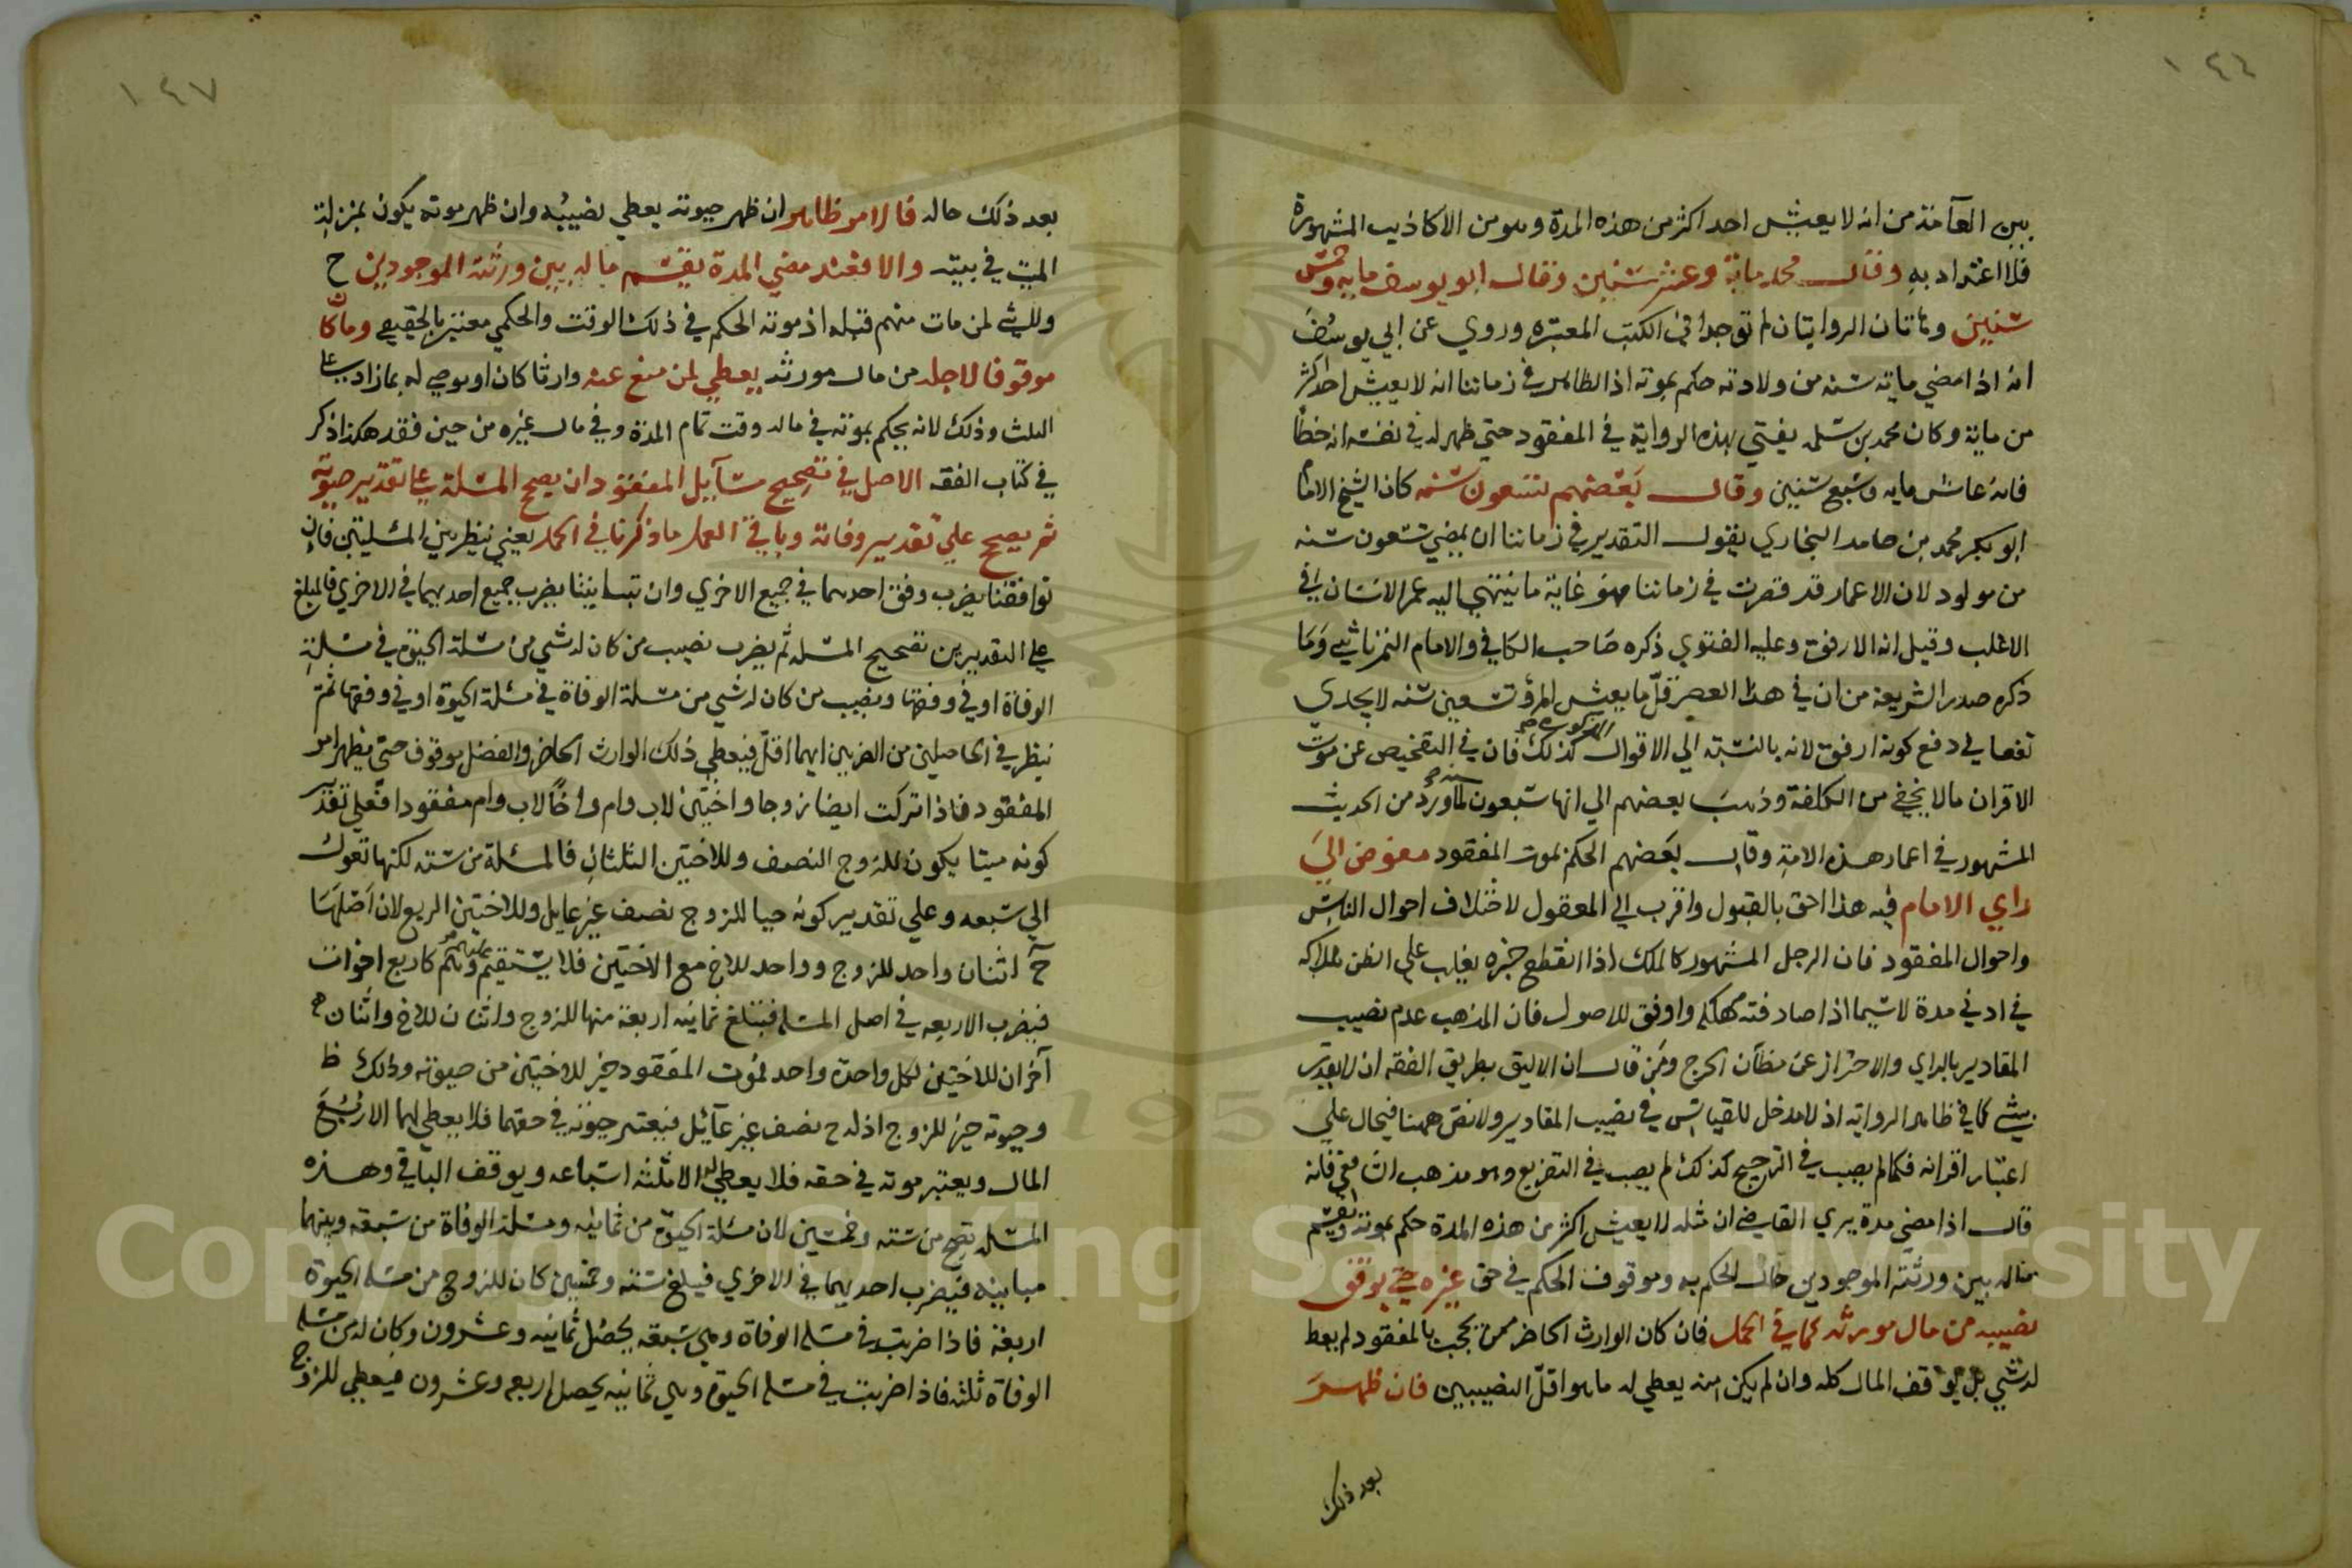 ١٤٦
بين العآمة من انه لا يعيش احد اكثر من هذه المدة وهو من الاكاذيب المشهورة
فلا اعتداد به وقال محمد ماية وعشر سنين وقال ابو يوسف مايه وخمس
سنين وهاتان الروايتان لم توجدا في الكتب المعتبره وروي عن ابي يوسف
انه اذا مضي مايه سنه من ولادته حكم بموته اذ الظاهر في زماننا انه لا يعيش احد اكثر
من ماية وكان محمد بن سلمه يفتي بهذه الرواية في المفقود حتي ظهر له في نفسه انه خطأ
فانه عاش مايه وسبع سنين وقال بعضهم تسعون سنه كان الشيخ الامام
ابو بكر محمد بن حامد البخاري يقول التقدير في زماننا ان يمضي تسعون سنه
من مولود لان الاعمار قد قصرت في زماننا فهو غاية ما ينتهي اليه عمر الانسان في
الاغلب وقيل انه الارفق وعليه الفتوي ذكره صاحب الكافي والامام التمرتاشي وما
ذكره صدر الشريعة من ان في هذا العصر قلّ ما يعيش المرؤ تسعين سنه لا يجدي
نفعا في دفع كونه ارفق لانه بالنسبة الي الاقوال كذلك فان في التفحيص عن موت
الاقران ما لا يخفي من الكلفة وذهب بعضهم الي انها سبعون سنه لما ورد من الحديث
المشهور في اعمار هذه الامة وقال بعضهم الحكم بموت المفقود مفوض الي
راي الامام فيه هذا احق بالقبول واقرب الي المعقول لاختلاف احوال الناس
واحوال المفقود فان الرجل المشهور كالملك اذا انقطع خبره يغلب علي الظن هلاكه
في ادني مدة لا سيما اذا صادفته مهلكه واوفق للاصول فان المذهب عدم نصيب
المقادير بالراي والاحتراز عن مظآن الحرج ومن قال ان الاليق بطريق الفقه ان لا يقدر
بشي كما في ظاهر الروايه اذ لا مدخل للقياس في نصيب المقادير ولا نص ههنا فيحال علي
اعتبار اقرانه فكما لم يصب في الترجيح كذلك لم يصب في التفريع وهو مذهب الشافعي فانه
قال اذا مضي مدة يري القاضي ان مثله لا يعيش اكثر من هذه المدة حكم بموته وانقسم
ماله بين ورثته الموجودين حال الحكم به وموقوف الحكم في حق غيره حتي يوقف
نصيبه من مال مورثه كما في الحمل فان كان الوارث الحاضر ممن يحجب بالمفقود لم يعط
له شي بل يوقف المال كله وان لم يكن منه يعطي له ما هو اقلّ النصيبين فان ظهر
بعد ذلك
١٤٧
بعد ذلك حاله فالامر ظاهر ان ظهر حيوته يعطي نصيبه وان ظهر موته يكون بمنزلة
الميت في بيته والا فعند مضي المدة يقسم ماله بين ورثته الموجودين ح
وليس لمن مات منهم قبله اذ موته الحكم في ذلك الوقت والحكمي معتبر بالحقيقي وما كان
موقوفا لاجله من مال مورثه يعطي لمن منع عنه وارثا كان او موصي له بما زاد علي
الثلث وذلك لانه يحكم بموته في ماله وقت تمام المدة وفي مال غيره من حين فقد هكذا ذكر
في كتاب الفقه الاصل في تصحيح مسآيل المفقود ان يصح المسلة علي تقدير حيوته
ثم يصح علي تقدير وفاته وباقي العمل ما ذكرنا في الحمل يعني ينظر بين المسليتين فان
توافقتا يضرب وفق احديهما في جميع الاخري وان تباينتا يضرب جميع احديهما في الاخري فالمبلغ
علي التقديرين تصحيح المسله ثم يضرب نصيب من كان له شي من مسلة الحيوة في مسلة
الوفاة او في وفقها ونصيب من كان له شي من مسلة الوفاة في مسلة الحيوة او في وفقها ثم
ينظر في الحاصلين من الضربين ايهما اقلّ فيعطي ذلك الوارث الحاضر والفضل موقوف حتي يظهر امر
المفقود فاذا تركت ايضا زوجا واختين لاب وام واخا لاب وام مفقودا فعلي تقدير
كونه ميتا يكون للزوج النصف وللاختين الثلثان فالمسلة من سته لكنها تعول
الي سبعه وعلي تقدير كونه حيا للزوج نصف غير عايل وللاختين الربع لان اصلها
ح اثنان واحد للزوج وواحد للاخ مع الاختين فلا يستقيم عليهم وهم كاربع اخوات
فيضرب الاربعه في اصل المسله فتبلغ ثمانيه اربعة منها للزوج واثنان للاخ واثنان
آخران للاختين لكل واحدة واحد فموت المفقود خير للاختين من حيوته وذلك ظ
وحيوته خير للزوج اذ له ح نصف غير عآئل فيعتبر حيوته في حقهما فلا يعطي لهما الا ربع
المال ويعتبر موته في حقه فلا يعطي له الا ثلثه اسباعه ويوقف الباقي وهذه
المسله تصح من سته وخمسين لان مسلة الحيوة من ثمانيه ومسلة الوفاة من سبعه وبينهما
مباينه فيضرب احديهما في الاخري فيبلغ ستة وخمسين كان للزوج من مسله الحيوة
اربعة فاذا ضربت في مسله الوفاة وهي سبعه يحصل ثمانيه وعشرون وكان له من مسله
الوفاة ثلثه فاذا ضربت في مسله الحيوة وهي ثمانيه يحصل اربعه وعشرون فيعطي للزوج
Copyright © King Saud University
195